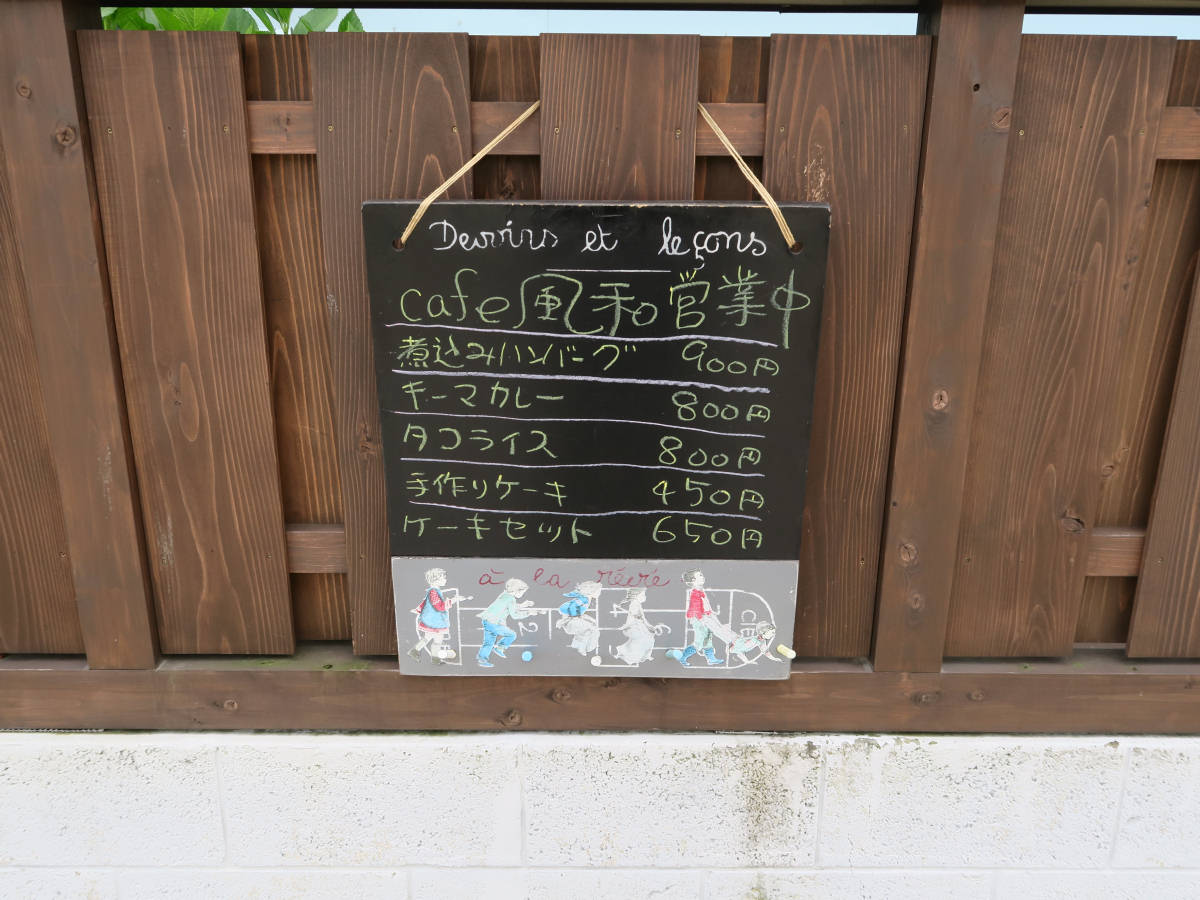 Devoirs et leçons
cafe 風和 営業中
煮込みハンバーグ 900円
キーマカレー 800円
タコライス 800円
手作りケーキ 450円
ケーキセット 650円
à la récré
2 4 6
CIEL